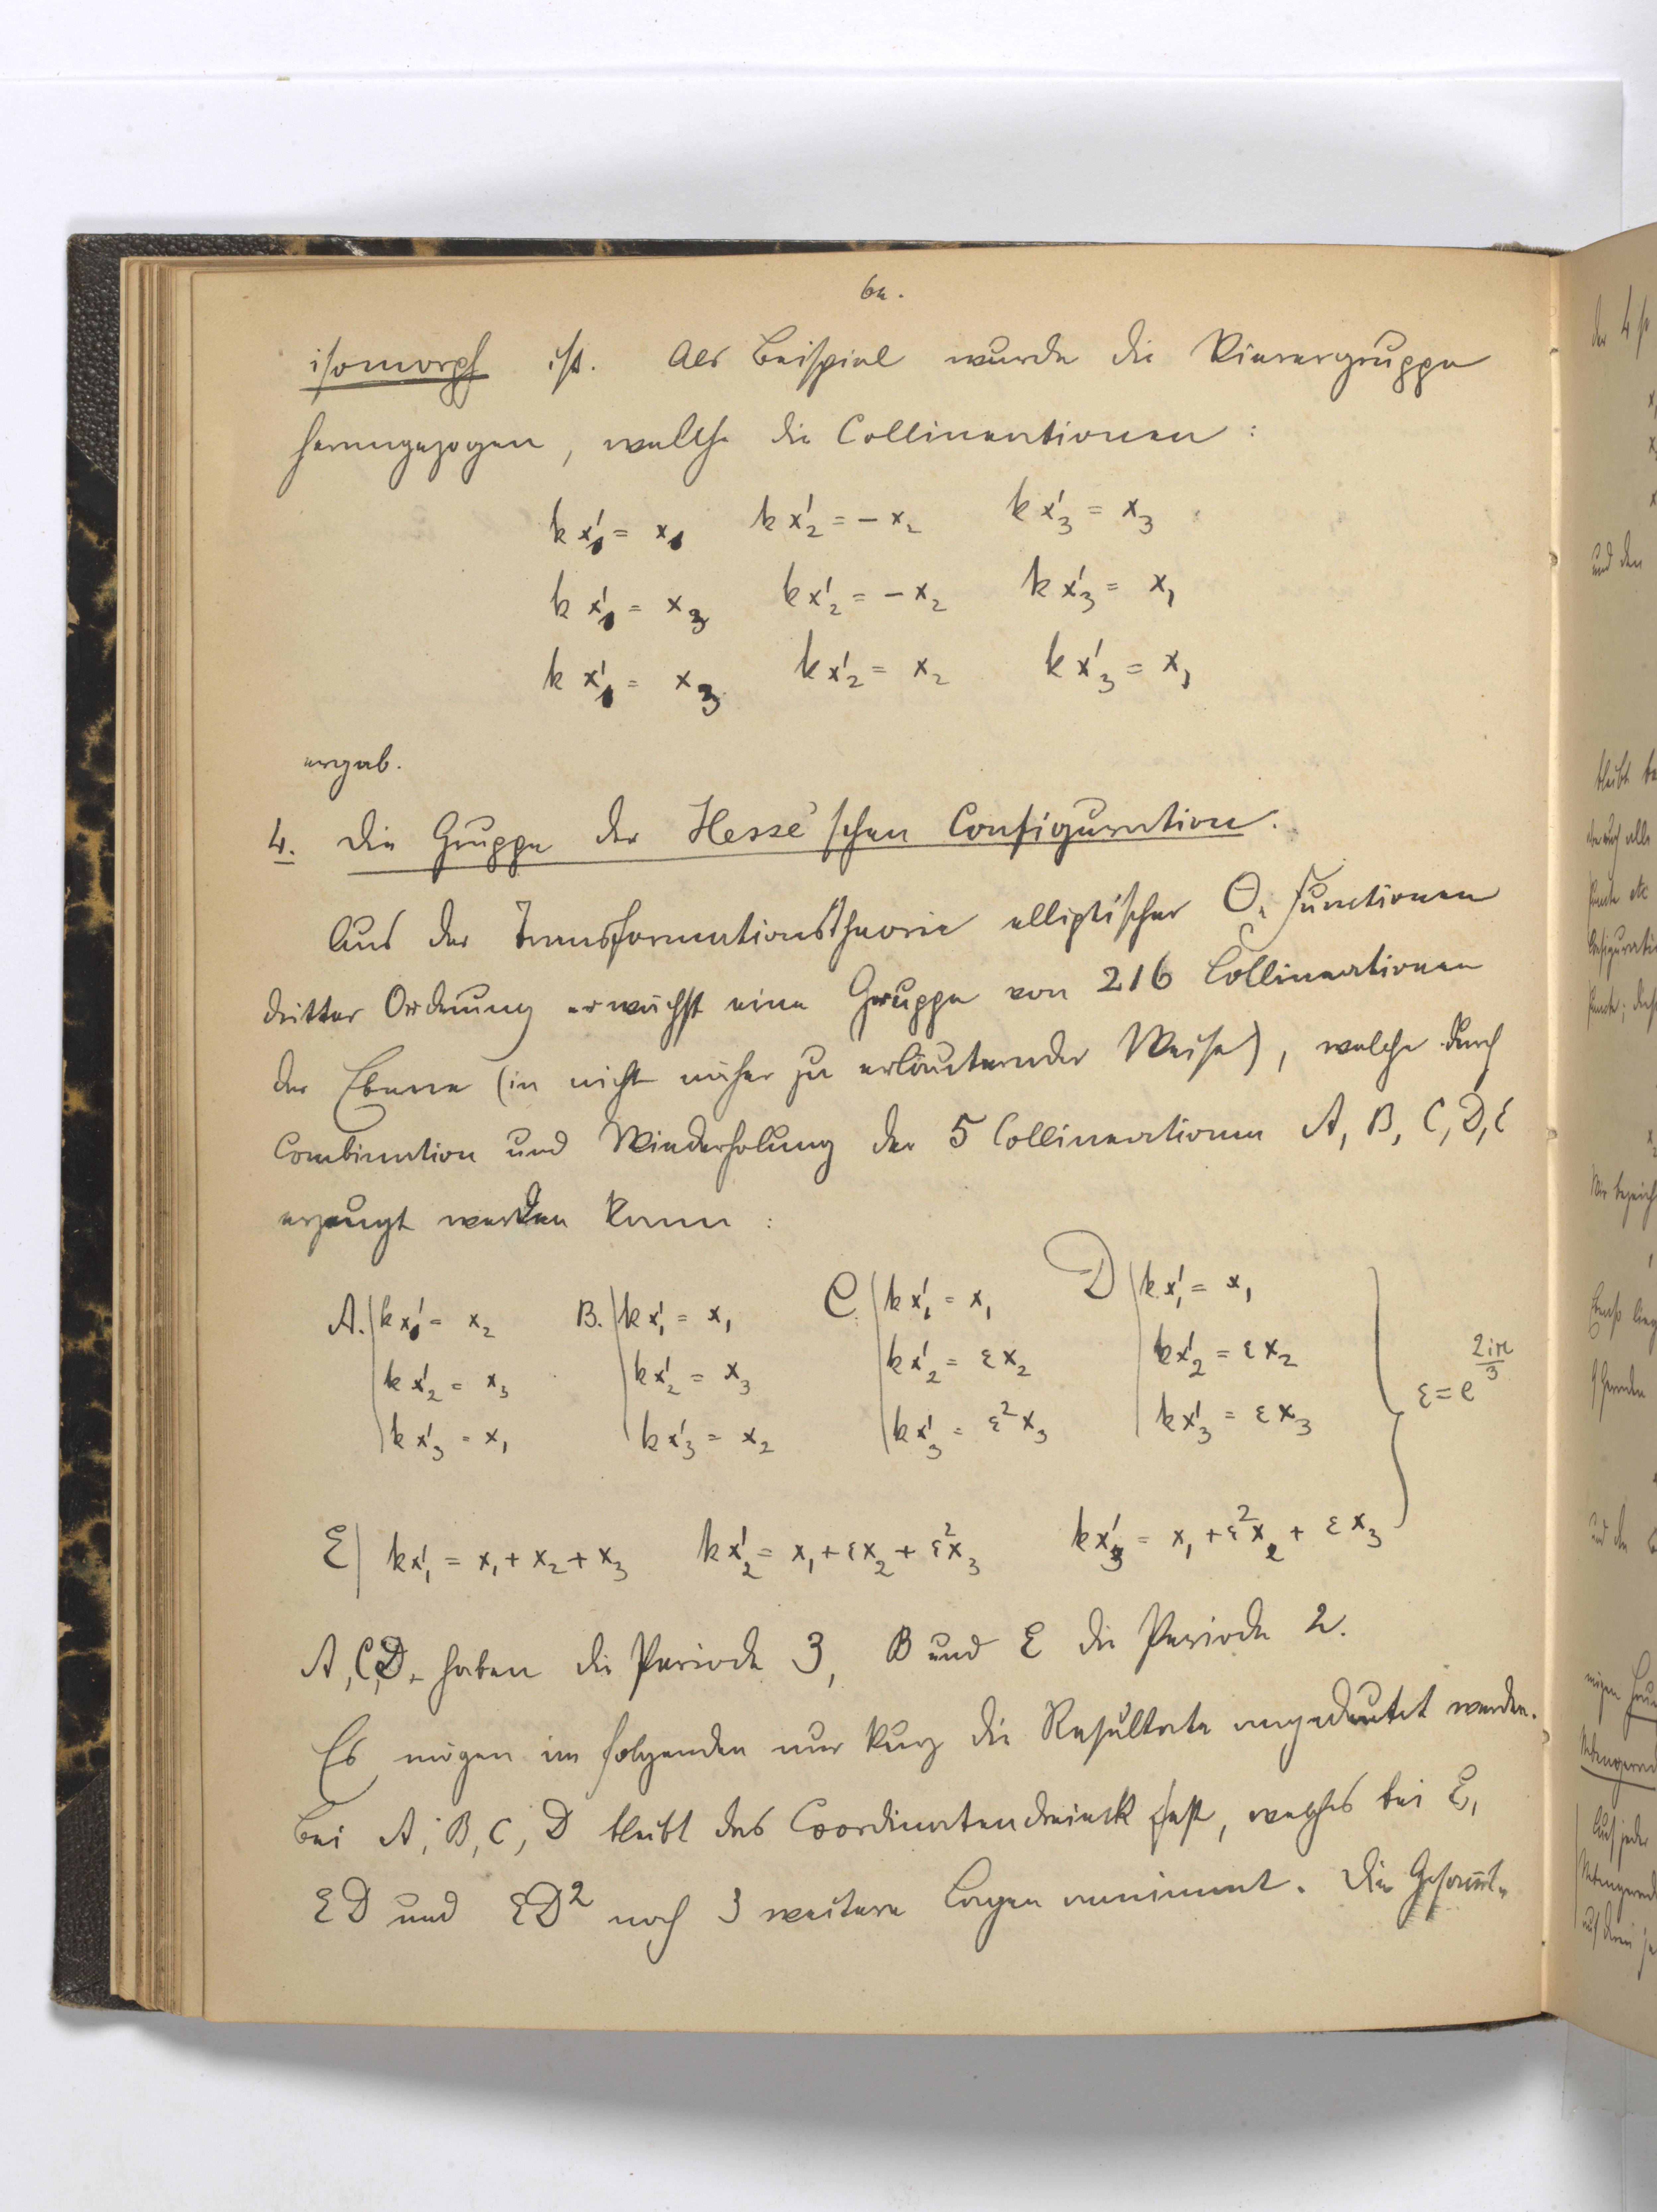 64.
isomorph ist. Als Beispiel wurde die Vierergruppe
herangezogen, welche die Collineationen:
kx'₁ = x₁ kx'₂ = -x₂ kx'₃ = x₃
kx'₁ = x₃ kx'₂ = -x₂ kx'₃ = x₁
kx'₁ = x₃ kx'₂ = x₂ kx'₃ = x₁
ergab.
4. Die Gruppe der Hesse'schen Configuration.
Aus der Transformationstheorie elliptischer Θ-Functionen
dritter Ordnung erwächst eine Gruppe von 216 Collineationen
der Ebene (in nicht näher zu erläuternder Weise), welche durch
Combination und Wiederholung der 5 Collineationen A, B, C, D, E
erzeugt werden kann:
A. kx'₁ = x₂ B. kx'₁ = x₁ C. kx'₁ = x₁ D kx'₁ = x₁
kx'₂ = x₃ kx'₂ = x₃ kx'₂ = εx₂ kx'₂ = εx₂ ε = e^(2iπ/3)
kx'₃ = x₁ kx'₃ = x₂ kx'₃ = ε²x₃ kx'₃ = εx₃
E kx'₁ = x₁ + x₂ + x₃ kx'₂ = x₁ + εx₂ + ε²x₃ kx'₃ = x₁ + ε²x₂ + εx₃
A, C, D. haben die Periode 3, B und E die Periode 2.
Es mögen im folgenden nur kurz die Resultate angedeutet werden.
Bei A, B, C, D bleibt das Coordinatendreieck fest, welches bei E,
ED und ED² noch 3 weitere Lagen annimmt. Die Gesammt-
und den